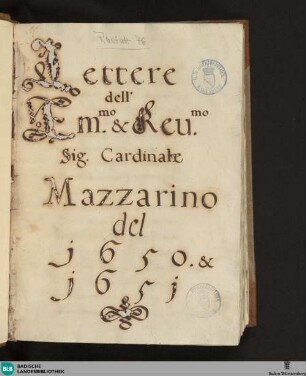 Rastatt 76
Lettere
dell'
Em.mo & Reu.mo
Sig. Cardinale
Mazzarino
del
1650. &
1651
BLB BADISCHE LANDESBIBLIOTHEK
Baden-Württemberg